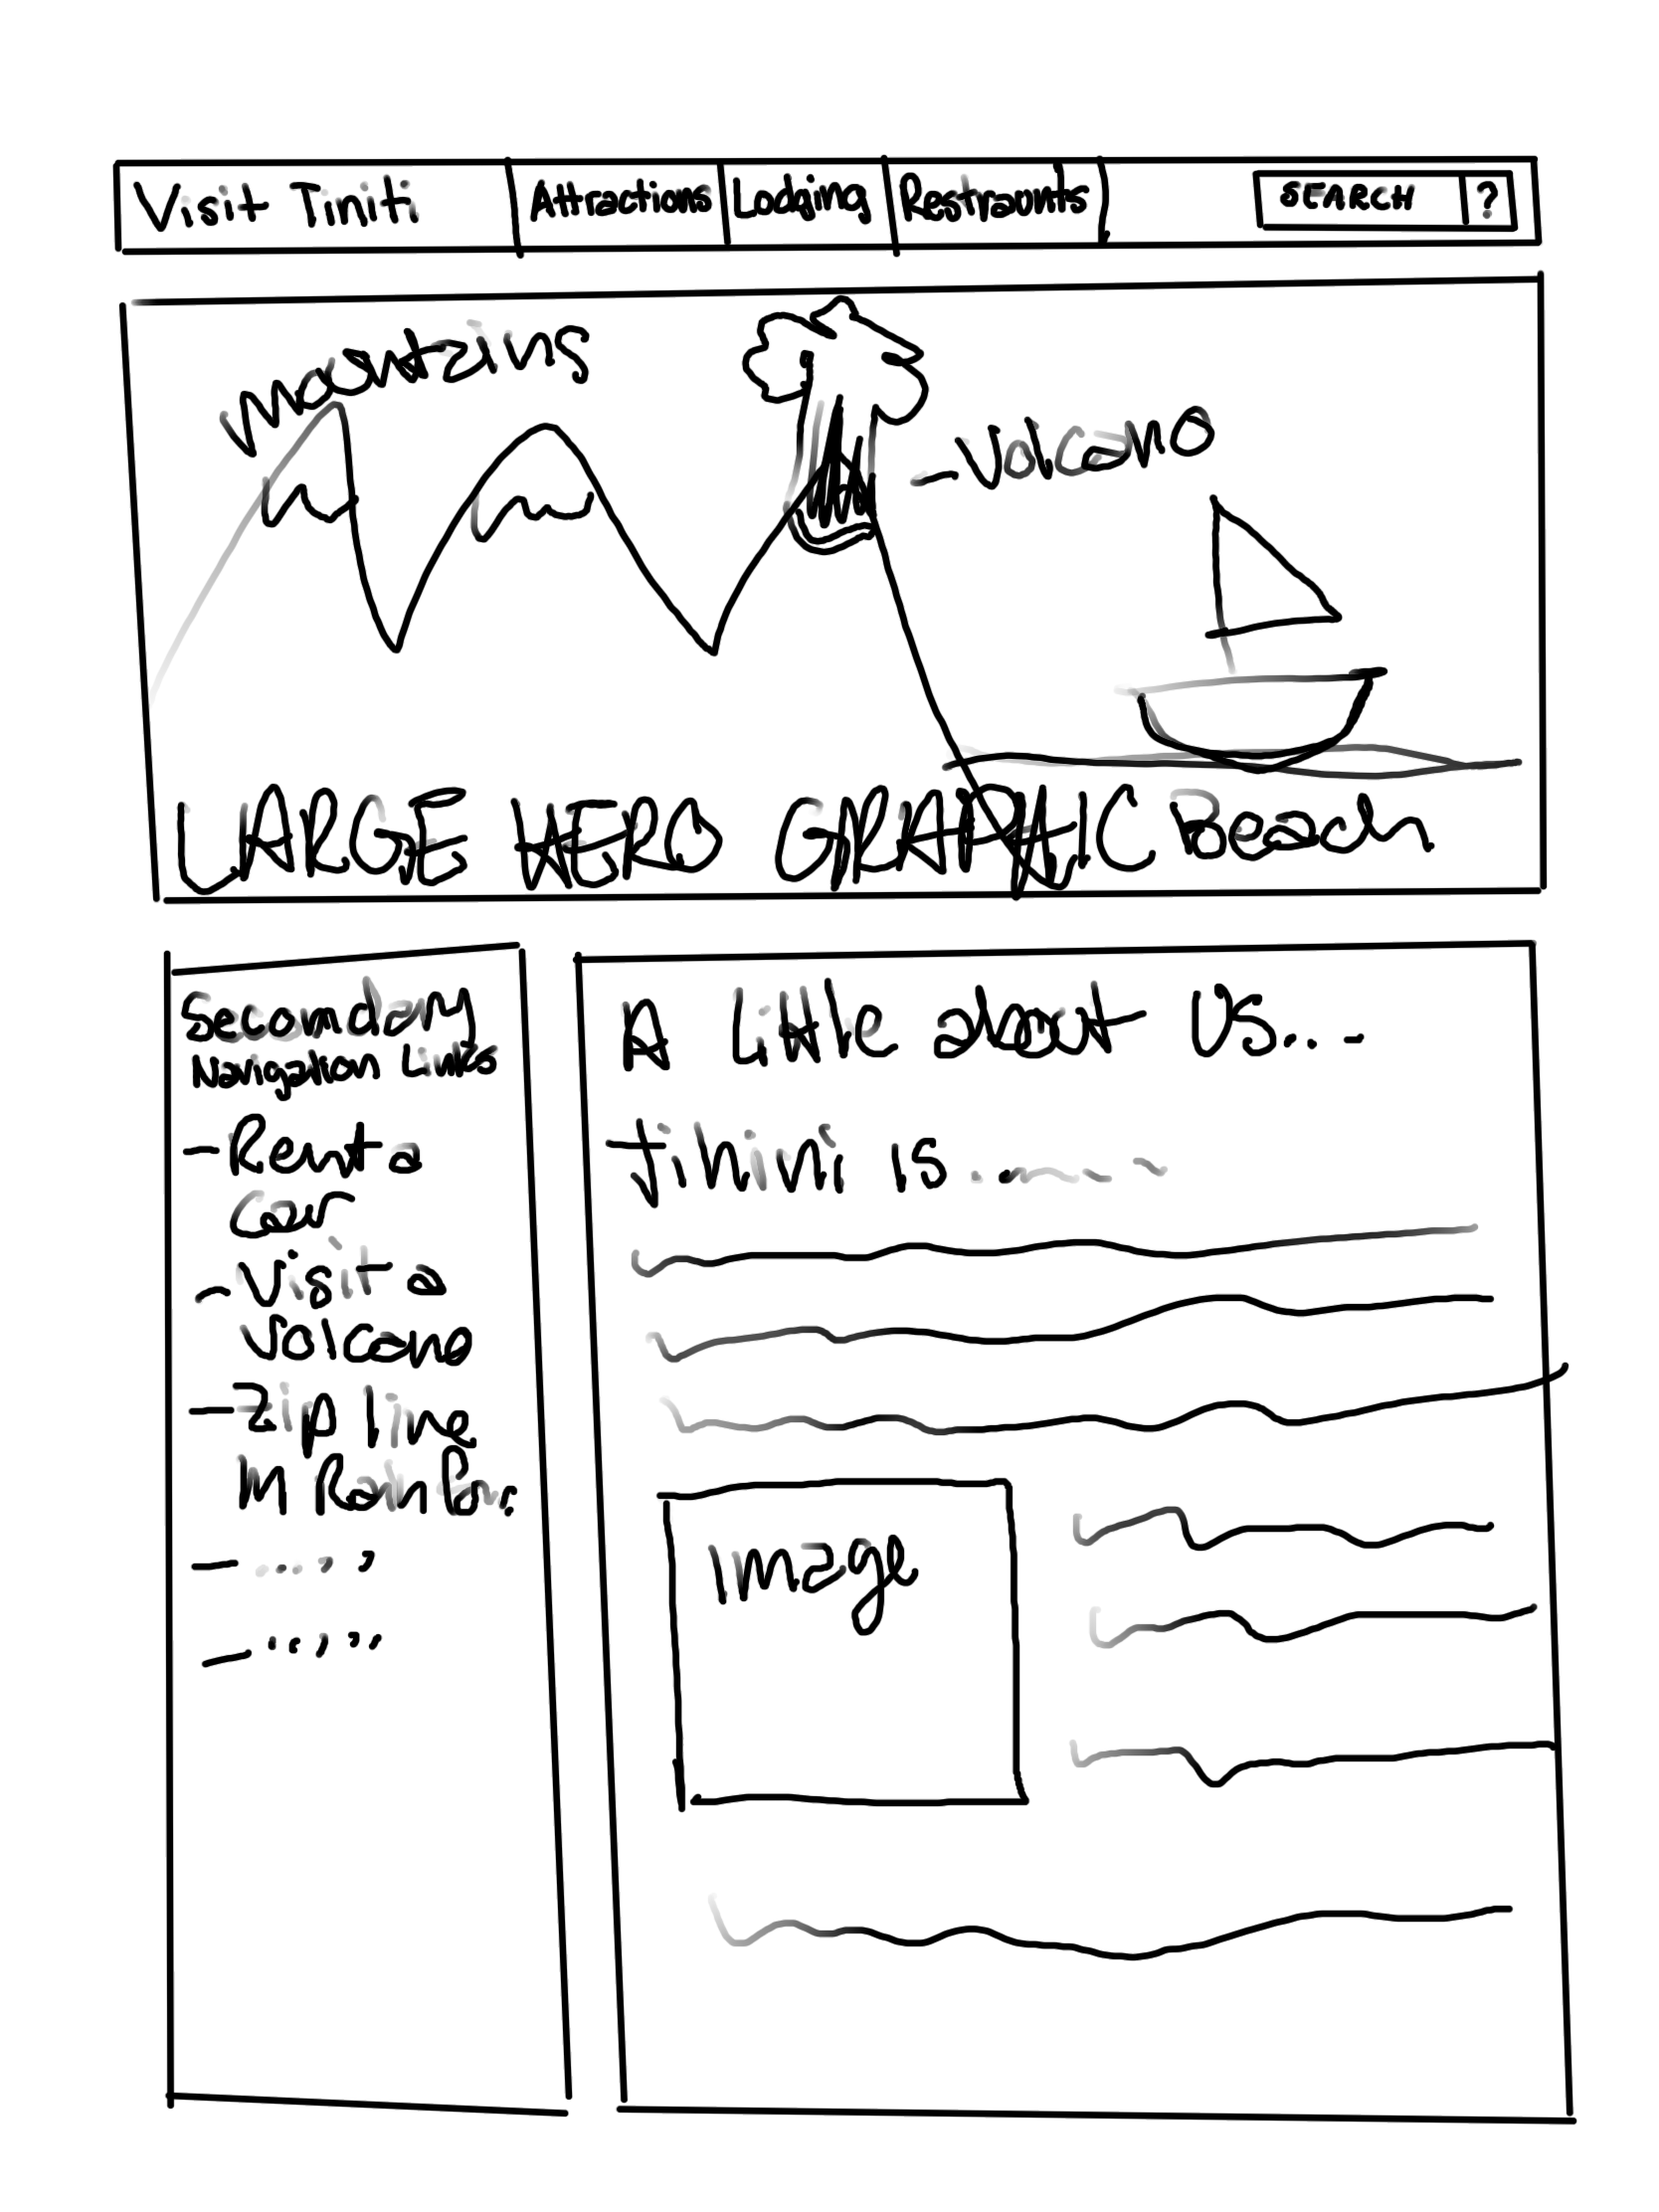 Visit Tiniti
Attractions
Lodging
Restraunts
SEARCH ?
mountains
-Volcano
LARGE HERO GRAPHIC Beach
Secondary
Navigation Links
-Rent a
Car
-Visit a
Volcano
-Zip line
in Rainfor.
A Little about US...-
tinini is
Image